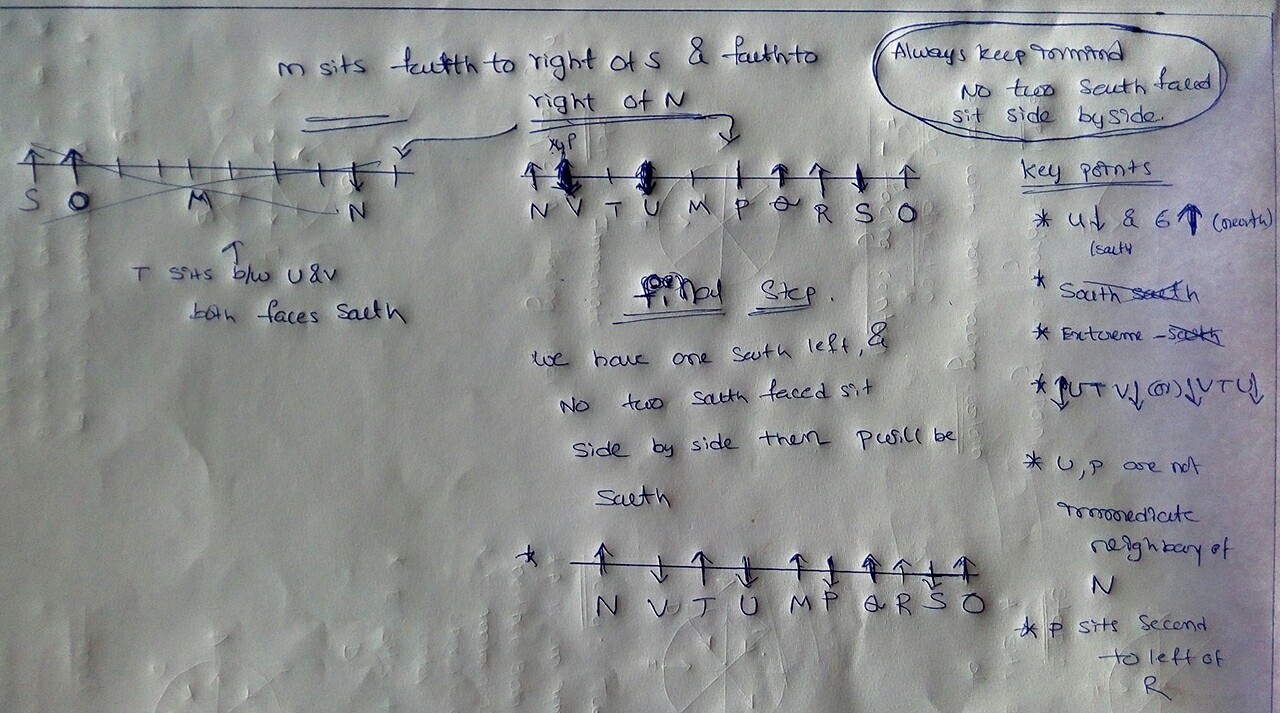 m sits fauth to right of S & fauth to
right of N
Always keep in mind
No two South faced
sit side by side.
S O M N
xyP
N V T U M P Q R S O
T sits b/w U & V
both faces Saeth
Final Step.
we have one South left, &
No two South faced sit
side by side then P will be
Saeth
* N V T U M P Q R S O
Key points
* 4↓ & 6↑ (north)
(South
* South
* Extreme - South
* ↓U T V↓ (or) ↓V T U↓
* U, P are not
immediate
neighbary of
N
* P sits Second
to left of
R